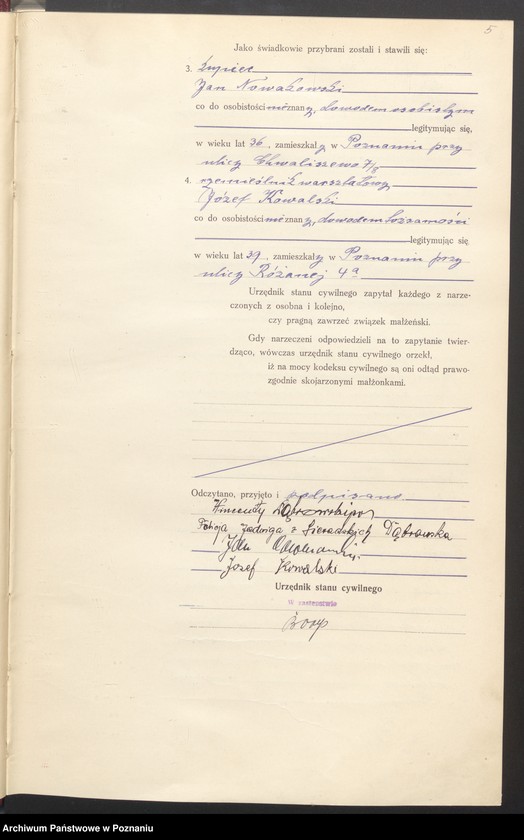 5
Jako świadkowie przybrani zostali i stawili się:
3. kupiec
Jan Nowakowski
co do osobistości nieznany, dowodem osobistym
legitymując się,
w wieku lat 36, zamieszkały w Poznaniu przy
ulicy Chwaliszewo 7/8
4. rzemieślnik warsztatowy
Józef Kowalski
co do osobistości nieznany, dowodem tożsamości
legitymując się
w wieku lat 39, zamieszkały w Poznaniu przy
ulicy Różanej 4a
Urzędnik stanu cywilnego zapytał każdego z narze-
czonych z osobna i kolejno,
czy pragną zawrzeć związek małżeński.
Gdy narzeczeni odpowiedzieli na to zapytanie twier-
dząco, wówczas urzędnik stanu cywilnego orzekł,
iż na mocy kodeksu cywilnego są oni odtąd prawo-
zgodnie skojarzonymi małżonkami.
Odczytano, przyjęto i podpisano
Wincenty Dąbrowski
Jadwiga z Sieradzkich Dąbrowska
Jan
Józef Kowalski
Urzędnik stanu cywilnego
W zastępstwie
Archiwum Państwowe w Poznaniu